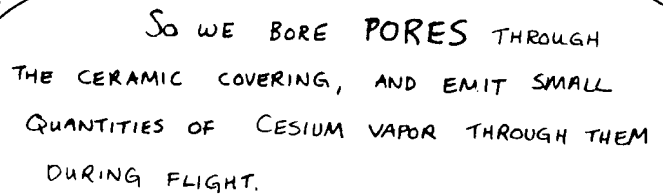 So WE BORE PORES THROUGH
THE CERAMIC COVERING, AND EMIT SMALL
QUANTITIES OF CESIUM VAPOR THROUGH THEM
DURING FLIGHT.